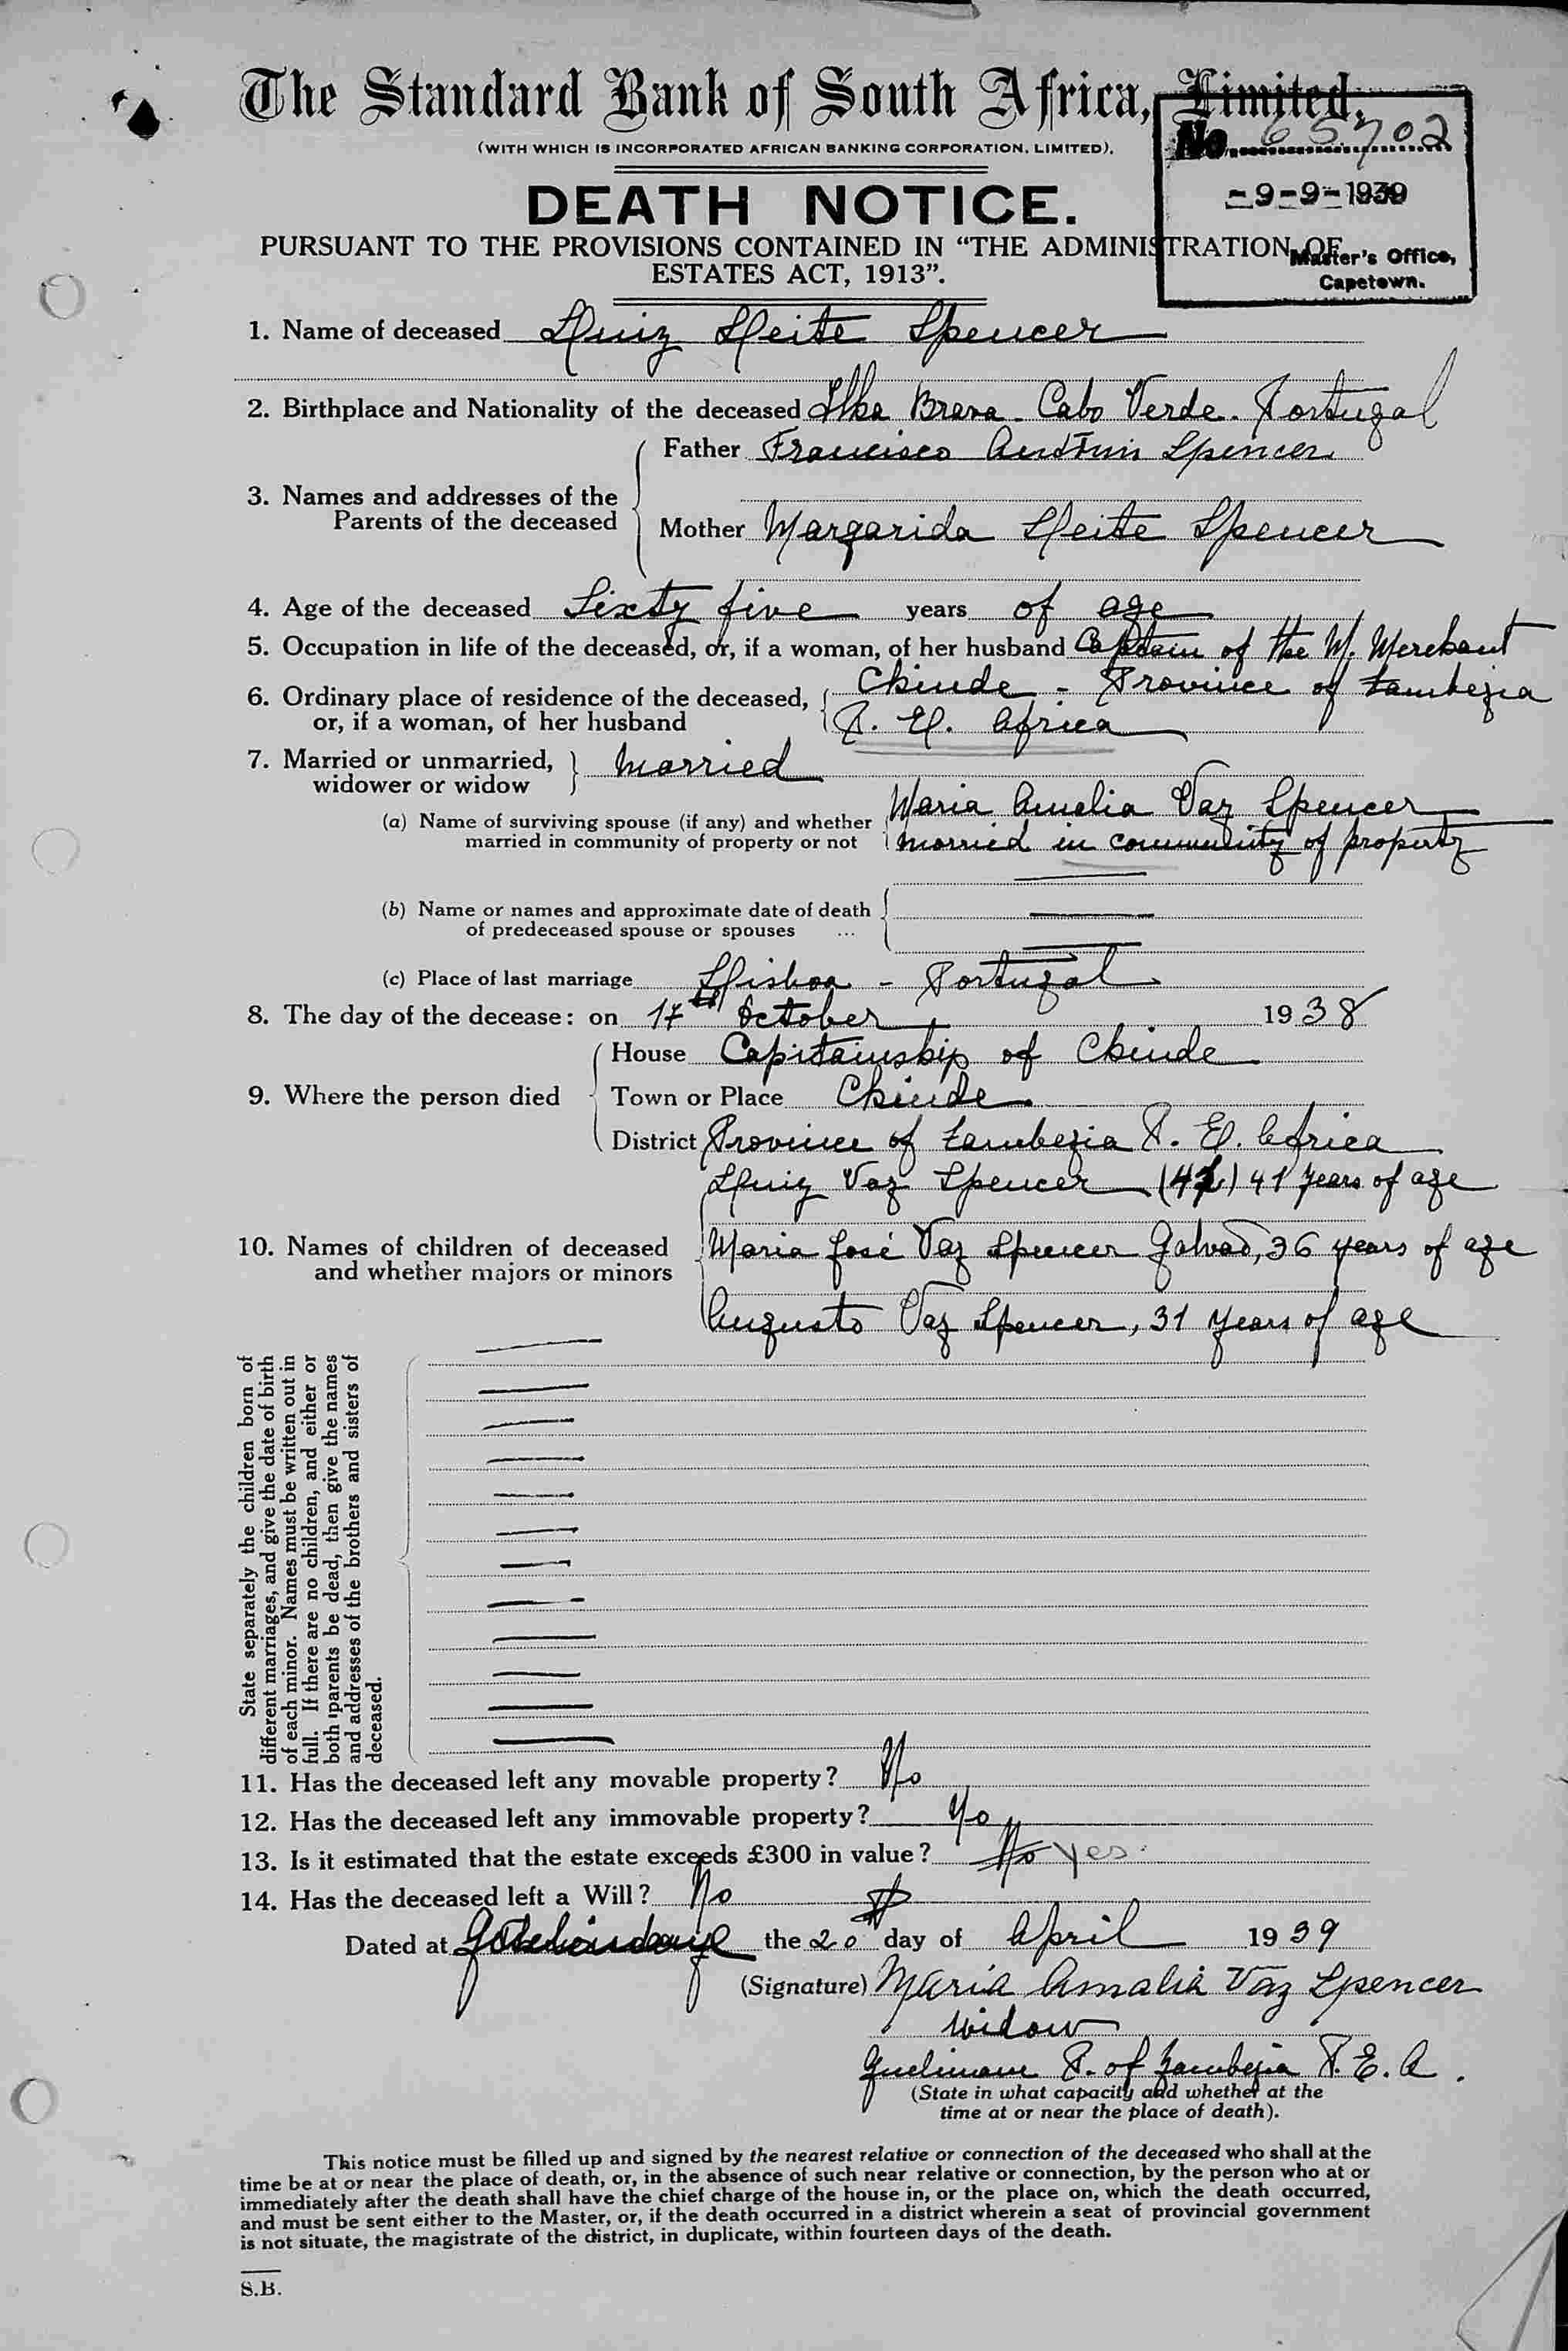 The Standard Bank of South Africa, Limited.
(WITH WHICH IS INCORPORATED AFRICAN BANKING CORPORATION, LIMITED).
No. 65702
-9-9-1939
Master's Office,
Capetown.
DEATH NOTICE.
PURSUANT TO THE PROVISIONS CONTAINED IN “THE ADMINISTRATION OF
ESTATES ACT, 1913”.
1. Name of deceased Luiz Leite Spencer
2. Birthplace and Nationality of the deceased Ilha Brava - Cabo Verde. Portugal
3. Names and addresses of the Parents of the deceased
Father Francisco Spencer
Mother Margarida Leite Spencer
4. Age of the deceased Sixty five years of age
5. Occupation in life of the deceased, or, if a woman, of her husband Captain of the M. Merchant
6. Ordinary place of residence of the deceased, Chinde - Province of Zambezia
or, if a woman, of her husband P. E. Africa
7. Married or unmarried, widower or widow Married
(a) Name of surviving spouse (if any) and whether Maria Amalia Vaz Spencer
married in community of property or not married in community of property
(b) Name or names and approximate date of death
of predeceased spouse or spouses ...
(c) Place of last marriage Lisboa - Portugal
8. The day of the decease: on 17th October 1938
House Capitainship of Chinde
9. Where the person died Town or Place Chinde
District Province of Zambezia P. E. Africa
Luiz Vaz Spencer 41 years of age
10. Names of children of deceased Maria José Vaz Spencer Galvao, 36 years of age
and whether majors or minors
Augusto Vaz Spencer, 31 years of age
State separately the children born of
different marriages, and give the date of birth
of each minor. Names must be written out in
full. If there are no children, and either or
both parents be dead, then give the names
and addresses of the brothers and sisters of
deceased.
11. Has the deceased left any movable property? No
12. Has the deceased left any immovable property? No
13. Is it estimated that the estate exceeds £300 in value? No Yes
14. Has the deceased left a Will? No
Dated at the 20th day of April 1939
(Signature) Maria Amalia Vaz Spencer
Widow
Quelimane P. of Zambezia P. E. A.
(State in what capacity and whether at the
time at or near the place of death).
This notice must be filled up and signed by the nearest relative or connection of the deceased who shall at the
time be at or near the place of death, or, in the absence of such near relative or connection, by the person who at or
immediately after the death shall have the chief charge of the house in, or the place on, which the death occurred,
and must be sent either to the Master, or, if the death occurred in a district wherein a seat of provincial government
is not situate, the magistrate of the district, in duplicate, within fourteen days of the death.
S.B.